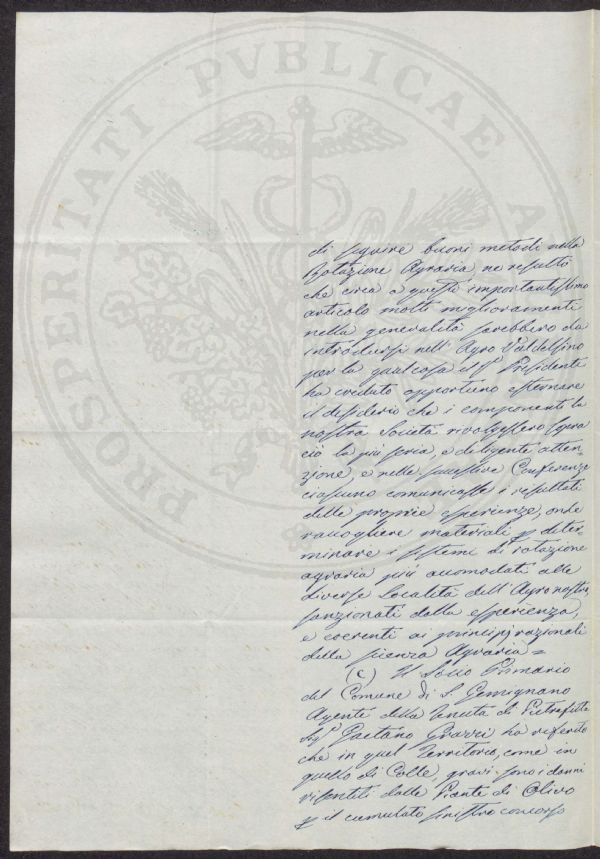 PROSPERITATI PVBLICAE A
di seguire buoni metodi nella
Rotazione Agraria, ne resultò
che circa a questo importantissimo
articolo molti miglioramenti
nella generalità sarebbero da
introdursi nell'Agro Valdelsino
per la qual cosa il Sr. Presidente
ha creduto opportuno esternare
il desiderio che i componenti la
nostra Società rivolgessero sopra
ciò la più seria, e diligente atten-
zione, e nelle successive Conferenze
ciascuno comunicasse i resultati
delle proprie esperienze, onde
raccogliere materiali p deter-
minare i sistemi di rotazione
agraria più accomodati alle
diverse Località dell'Agro nostro,
sanzionati dalla esperienza,
e coerenti ai principj razionali
della scienza Agraria =
(C) Il Socio Primario
del Comune di S. Gemignano
Agente della Tenuta di Pietrafitta
Sigr. Gaetano ha referito
che in quel Territorio, come in
quello di Colle, gravi sono i danni
risentiti dalle Piante di Olivo
p il cumulato sinistro concorso